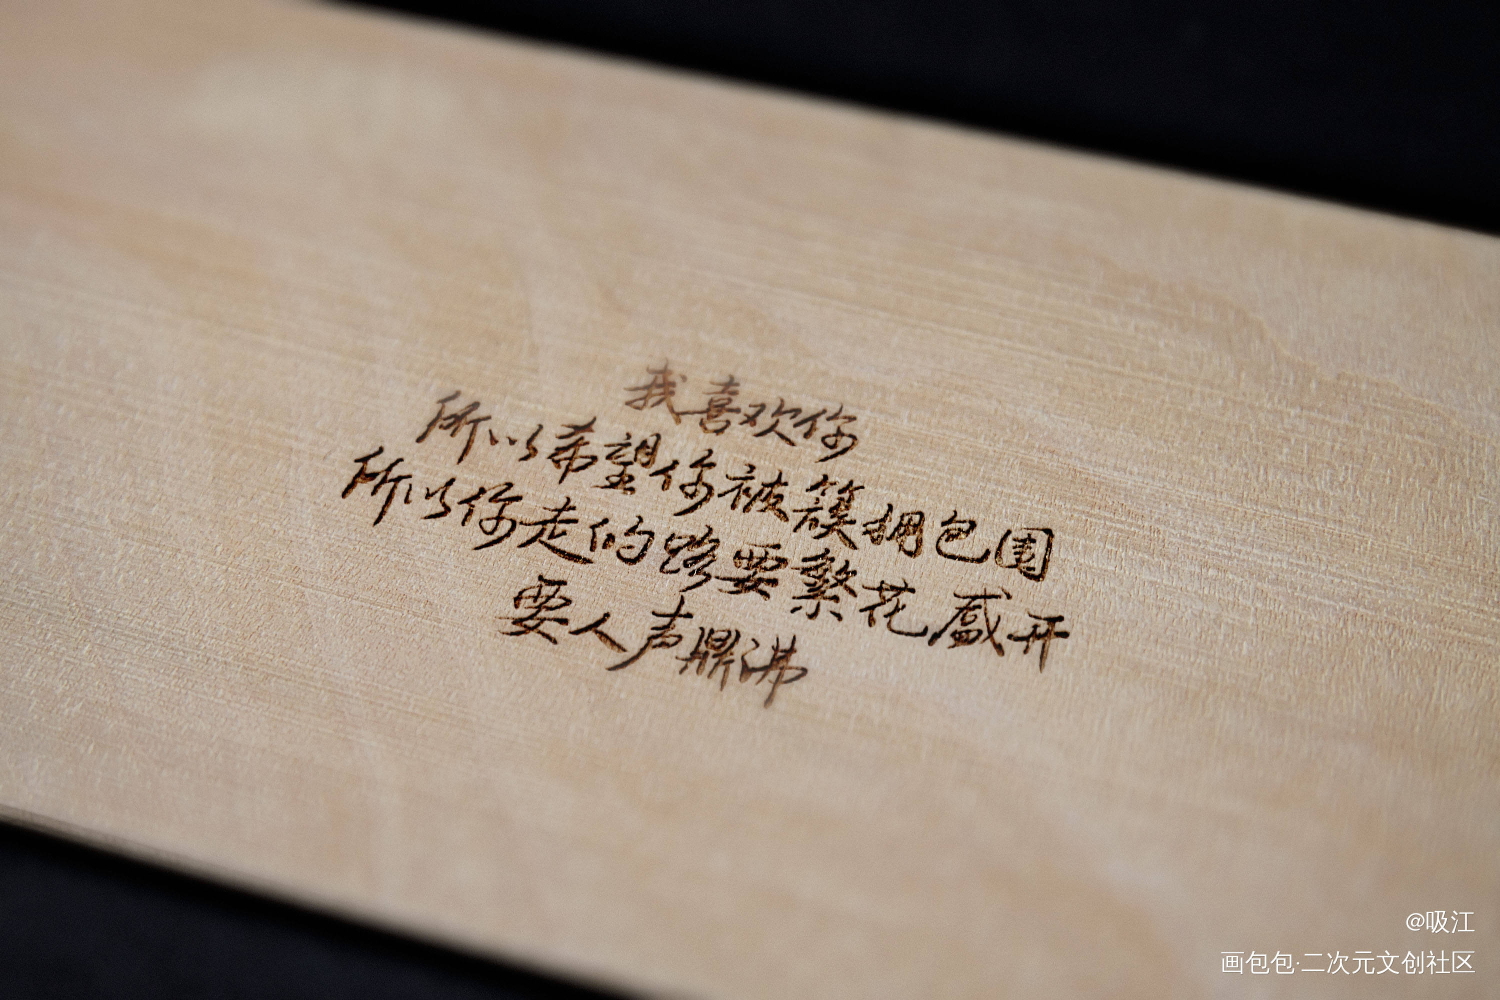 我喜欢你
所以希望你被簇拥包围
所以你走的路要繁花盛开
要人声鼎沸
@吸江
画包包·二次元文创社区